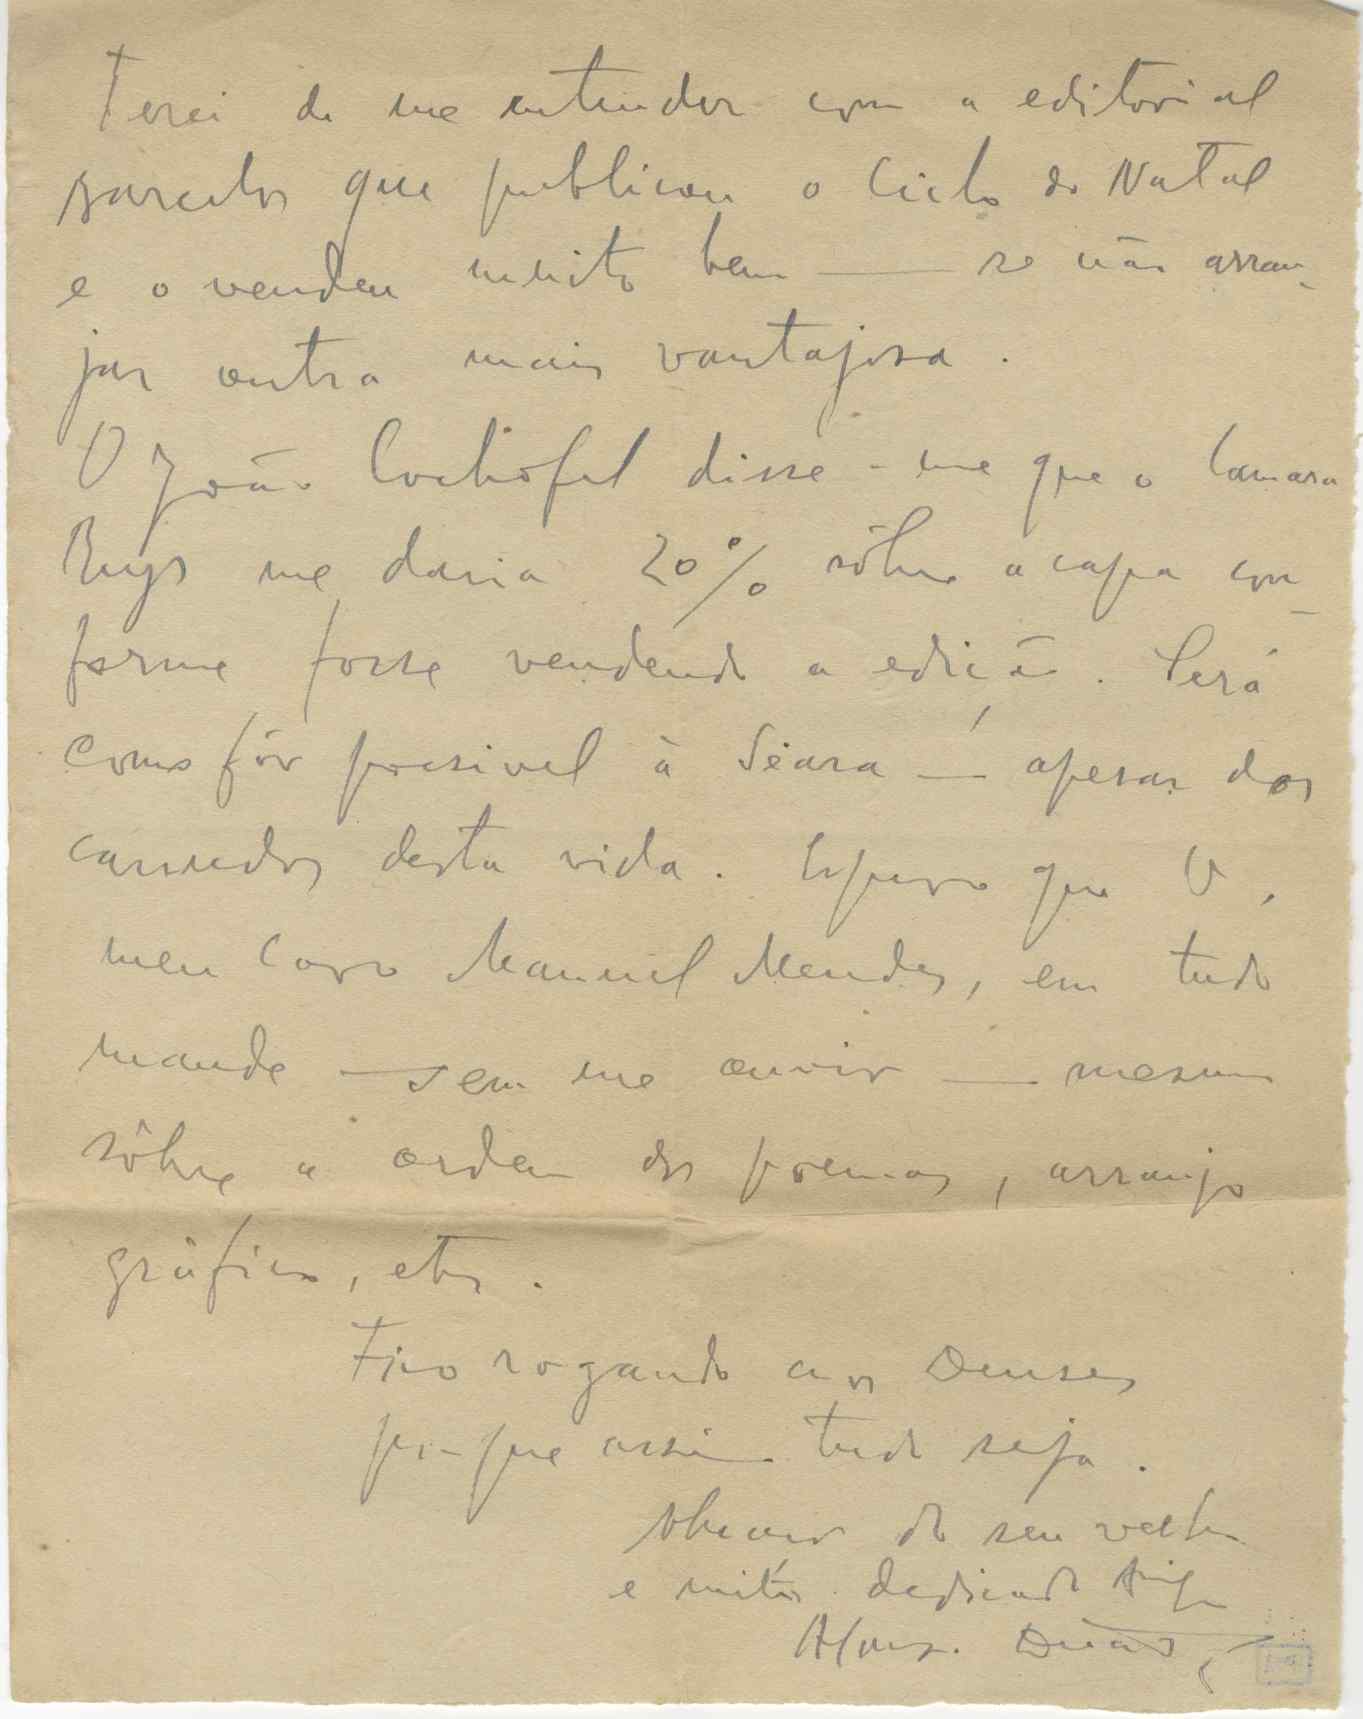 Terei de me entender com a editorial
Barcelos que publicou o Ciclo do Natal
e o vendeu muito bem — se não arran-
jar outra mais vantajosa.
O João Cochofel disse-me que o Camara
Reys me daria 20% sôbre a capa con-
forme fosse vendendo a edição. Será
como fôr possivel à Seara — apesar dos
desta vida. Espero que V,
meu Caro Manuel Mendes, em tudo
mande — sem me ouvir — mesmo
sôbre a ordem dos poemas, arranjo
gráfico, etc.
Fico rogando aos Deuses
pª que assim tudo seja.
Abraço do seu velho
e muito dedicado Amigo
Afonso Duarte